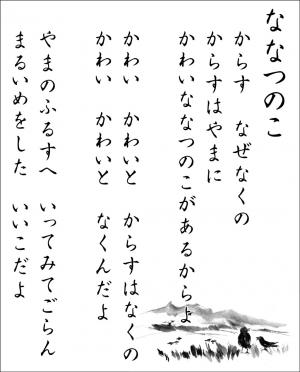 ななつのこ
からす　なぜなくの
からすはやまに
かわいななつのこがあるからよ
かわい　かわいと　からすはなくの
かわい　かわいと　なくんだよ
やまのふるすへ　いってみてごらん
まるいめをした　いいこだよ